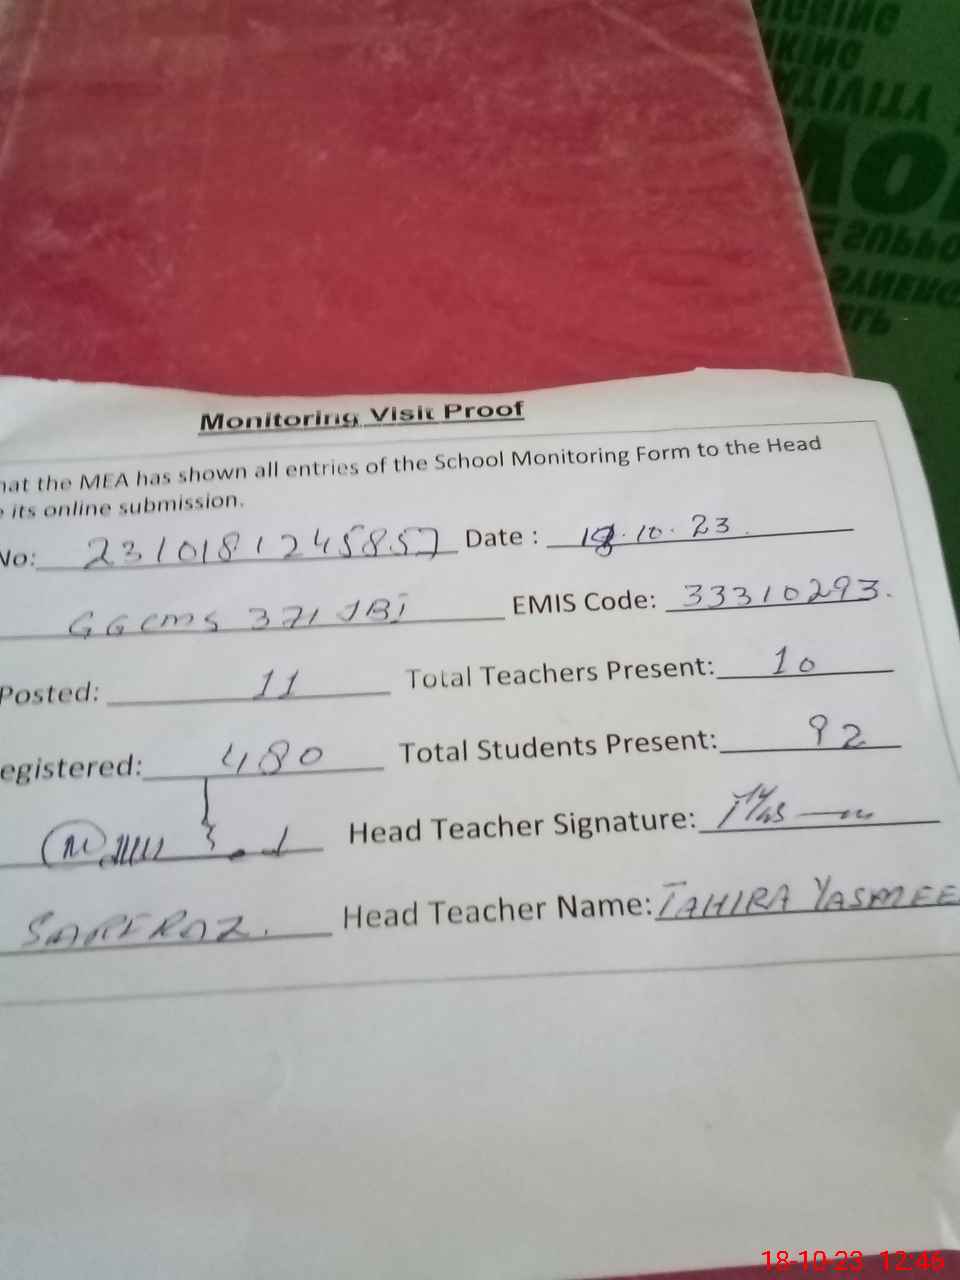 Monitoring Visit Proof
hat the MEA has shown all entries of the School Monitoring Form to the Head
e its online submission.
No: 231018124585 Date : 18.10.23.
GGCMS 371 JBi EMIS Code: 33310293.
Posted: 11 Total Teachers Present: 10
egistered: 480 Total Students Present: 92
Head Teacher Signature:
SARFRAZ. Head Teacher Name: TAHIRA YASMEE
18-10-23 12:46